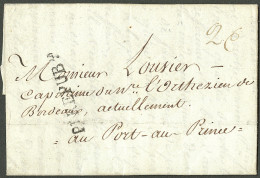 26
Monsieur Lousier
Capitaine du n.re l'Orthezien de
Bordeaux, actuellement.
= au Port-au-Prince =